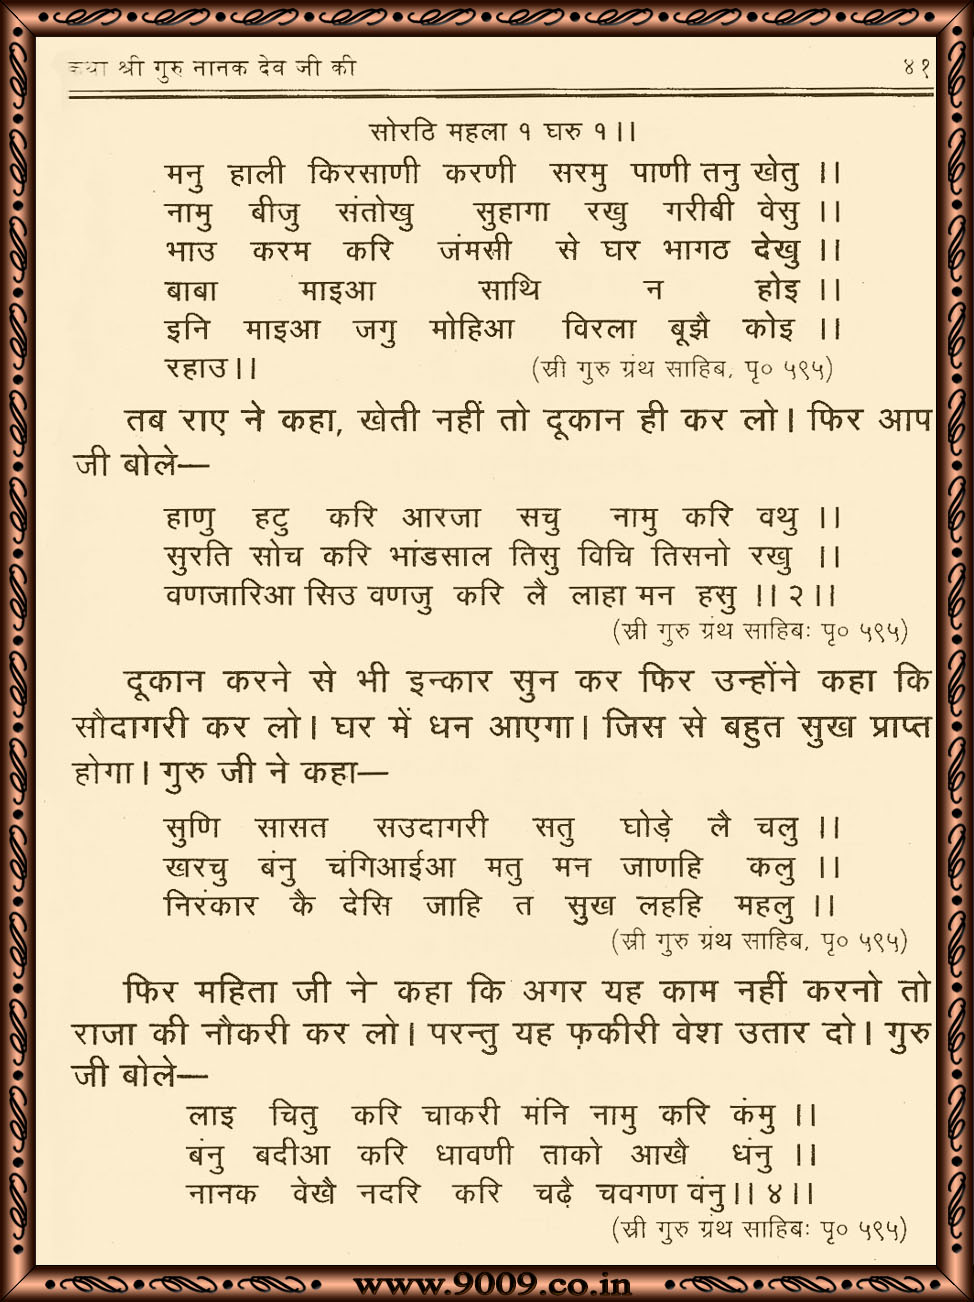 कथा श्री गुरु नानक देव जी की ४१
सोरठि महला १ घरु १।।
मनु हाली किरसाणी करणी सरमु पाणी तनु खेतु ।।
नामु बीजु संतोखु सुहागा रखु गरीबी वेसु ।।
भाउ करम करि जंमसी से घर भागठ देखु ।।
बाबा माइआ साथि न होइ ।।
इनि माइआ जगु मोहिआ विरला बूझै कोइ ।।
रहाउ।। (स्री गुरु ग्रंथ साहिब, पृ० ५९५)
तब राए ने कहा, खेती नहीं तो दूकान ही कर लो। फिर आप
जी बोले—
हाणु हटु करि आरजा सचु नामु करि वथु ।।
सुरति सोच करि भांडसाल तिसु विचि तिसनो रखु ।।
वणजारिआ सिउ वणजु करि लै लाहा मन हसु ।। २।।
(स्री गुरु ग्रंथ साहिबः पृ० ५९५)
दूकान करने से भी इन्कार सुन कर फिर उन्होंने कहा कि
सौदागरी कर लो। घर में धन आएगा। जिस से बहुत सुख प्राप्त
होगा। गुरु जी ने कहा—
सुणि सासत सउदागरी सतु घोड़े लै चलु ।।
खरचु बंनु चंगिआईआ मतु मन जाणहि कलु ।।
निरंकार कै देसि जाहि त सुख लहहि महलु ।।
(स्री गुरु ग्रंथ साहिब, पृ० ५९५)
फिर महिता जी ने कहा कि अगर यह काम नहीं करनो तो
राजा की नौकरी कर लो। परन्तु यह फ़कीरी वेश उतार दो। गुरु
जी बोले—
लाइ चितु करि चाकरी मंनि नामु करि कंमु ।।
बंनु बदीआ करि धावणी ताको आखै धंनु ।।
नानक वेखै नदरि करि चढ़ै चवगण वंनु।। ४।।
(स्री गुरु ग्रंथ साहिबः पृ० ५९५)
www.9009.co.in